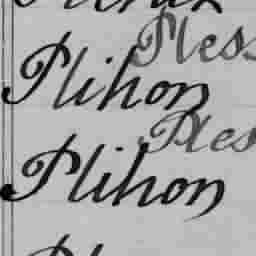 Pless
Plihon
Ples
Plihon